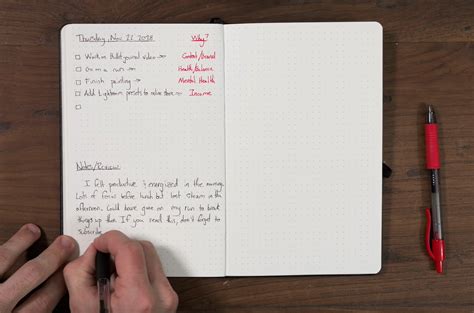 Thursday, Nov 21 2018 Why?
Work on Bullet journal video → Content/Brand
Go on a run → Health/Balance
Finish painting → Mental Health
Add Lightroom presets to online store → Income
Notes/Review
I felt productive & energized in the morning.
Lots of focus before lunch but lost steam in the
afternoon. Could have gone on my run to break
things up then. If you read this, don't forget to
subscribe